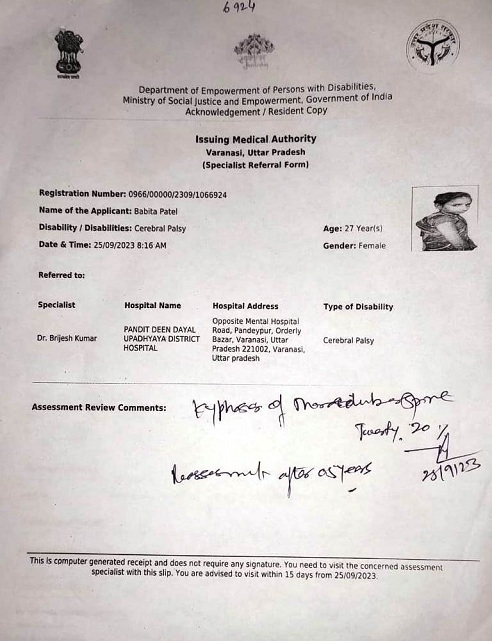 6924
Department of Empowerment of Persons with Disabilities,
Ministry of Social Justice and Empowerment, Government of India
Acknowledgement / Resident Copy
Issuing Medical Authority
Varanasi, Uttar Pradesh
(Specialist Referral Form)
Registration Number: 0966/00000/2309/1066924
Name of the Applicant: Babita Patel
Disability / Disabilities: Cerebral Palsy Age: 27 Year(s)
Date & Time: 25/09/2023 8:16 AM Gender: Female
Referred to:
Specialist Hospital Name Hospital Address Type of Disability
Dr. Brijesh Kumar
PANDIT DEEN DAYAL
UPADHYAYA DISTRICT
HOSPITAL
Opposite Mental Hospital
Road, Pandeypur, Orderly
Bazar, Varanasi, Uttar
Pradesh 221002, Varanasi,
Uttar pradesh
Cerebral Palsy
Assessment Review Comments:
Kyphosis of Spine
Twenty. 20 %
Reassessment after 05 years
25/9/23
This is computer generated receipt and does not require any signature. You need to visit the concerned assessment
specialist with this slip. You are advised to visit within 15 days from 25/09/2023.